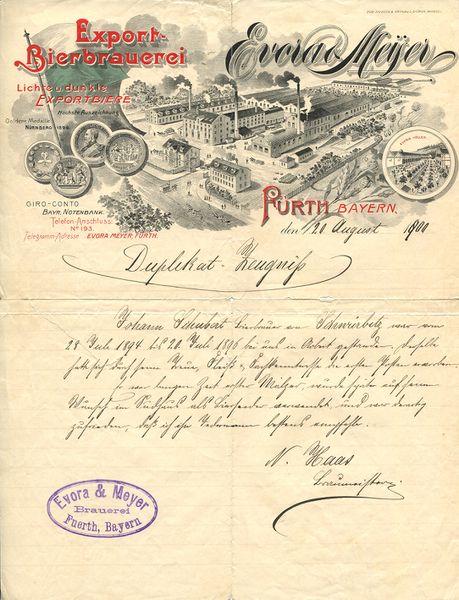 Export-
Bierbrauerei
Evora & Meyer
Lichte u. dunkle
EXPORTBIERE
Höchste Auszeichnung
Goldene Medaille
NÜRNBERG 1896.
GIRO-CONTO
BAYR. NOTENBANK.
Telefon-Anschluss:
No 193.
Telegramm-Adresse: EVORA MEYER, FÜRTH.
FÜRTH BAYERN,
den 20 August 1900
Duplikat-Zeugniß
Johann Schubert Bierbrauer von war vom
28 Juli 1894 bis 20 Juli 1896 bei uns in Arbeit gestanden. Derselbe
hatte sich durch seine Treue, Fleiß & Fachkenntnisse die ersten Posten erworben.
war lange Zeit erster Mälzer, wurde später auf seinen
Wunsch im Sudhaus als Biersieder verwendet, und wir derartig
zufrieden, daß ich ihn Jedermann bestens empfehle.
N. Haas
Braumeister
Evora & Meyer
Brauerei
Fuerth, Bayern